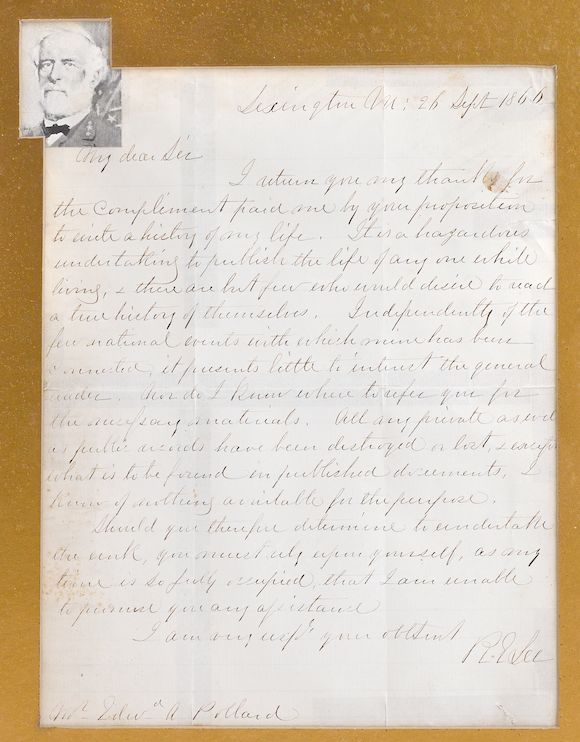 Lexington Va: 26 Sept 1866
My dear Sir
I return you my thanks for
the compliment paid me by your proposition
to write a history of my life. It is a hazardous
undertaking to publish the life of any one while
living, & there are but few who would desire to read
a true history of themselves. Independently of the
few national events with which mine has been
connected, it presents little to interest the general
reader. Nor do I know where to refer you for
the necessary materials. All my private as well
as public records have been destroyed or lost, & except
what is to be found in published documents, I
know of nothing available for the purpose.
Should you therefore determine to undertake
the work, you must rely upon yourself, as my
time is so fully occupied, that I am unable
to promise you any assistance
I am very respy your obt servt
R. E. Lee
Mr. Edwd A Pollard